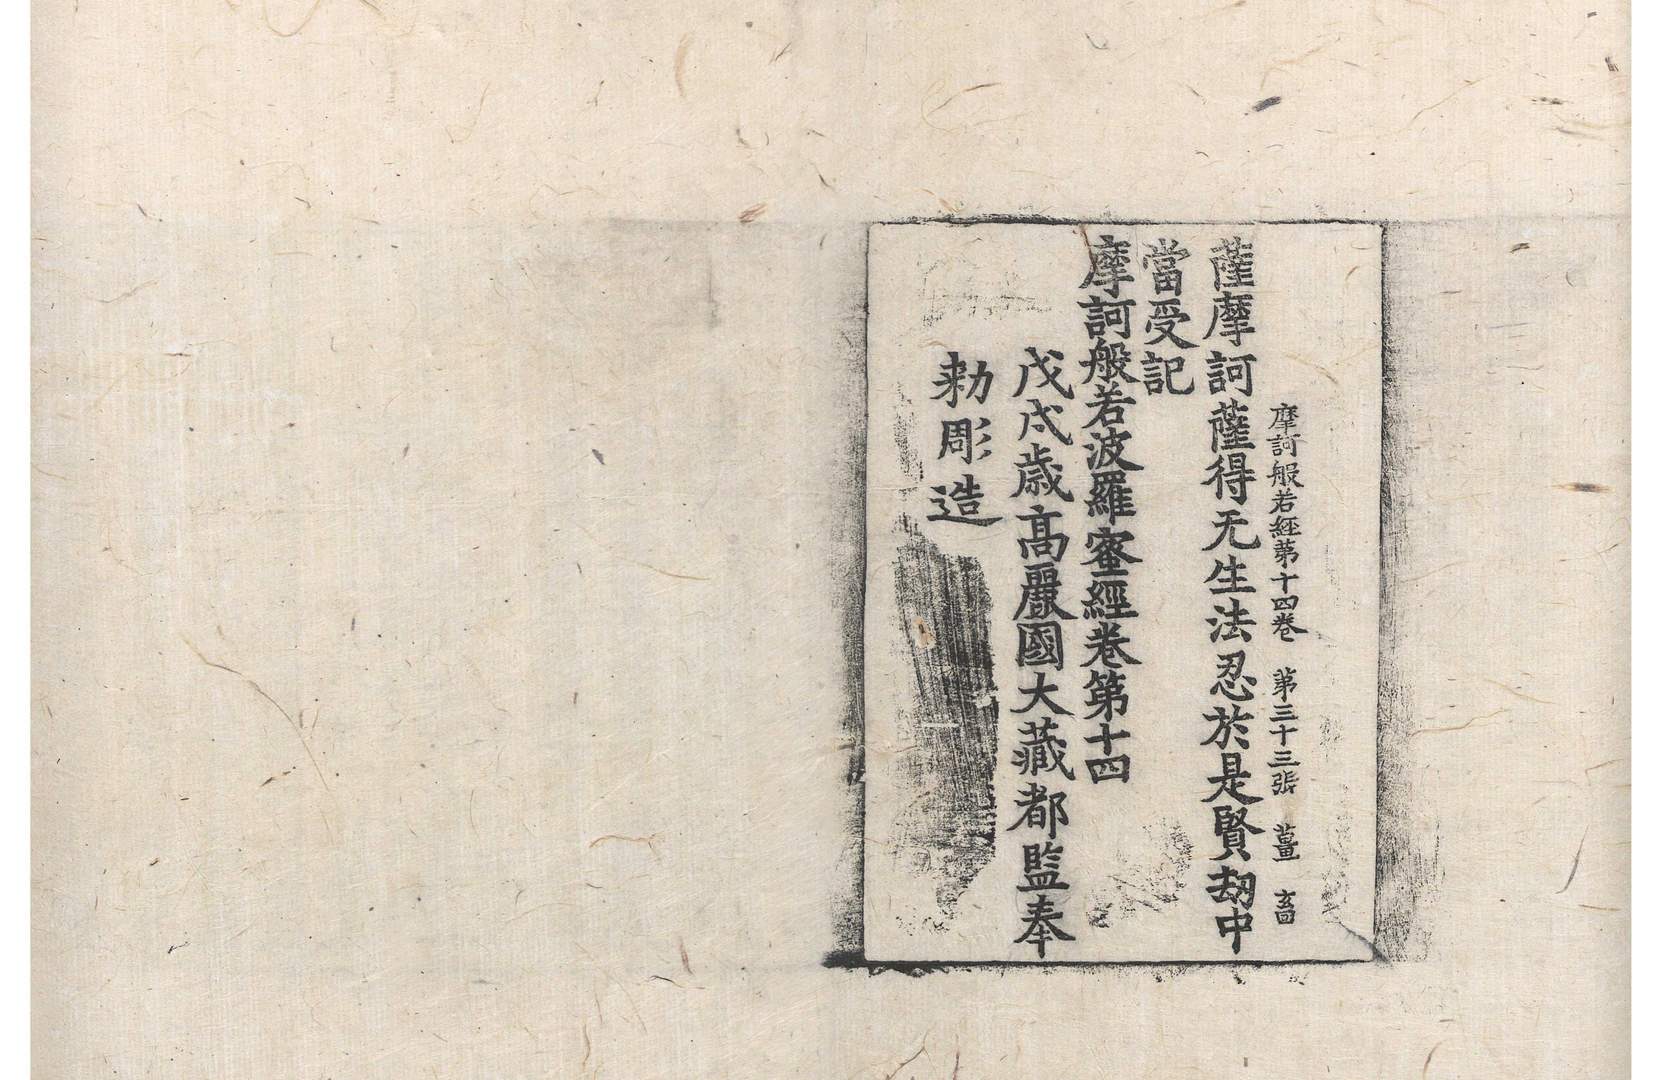 摩訶般若經第十四卷　第三十三張　薑　玄囙
薩摩訶薩得无生法忍於是賢劫中
當受記
摩訶般若波羅蜜經卷第十四
戊戌歲高麗國大藏都監奉
勅彫造